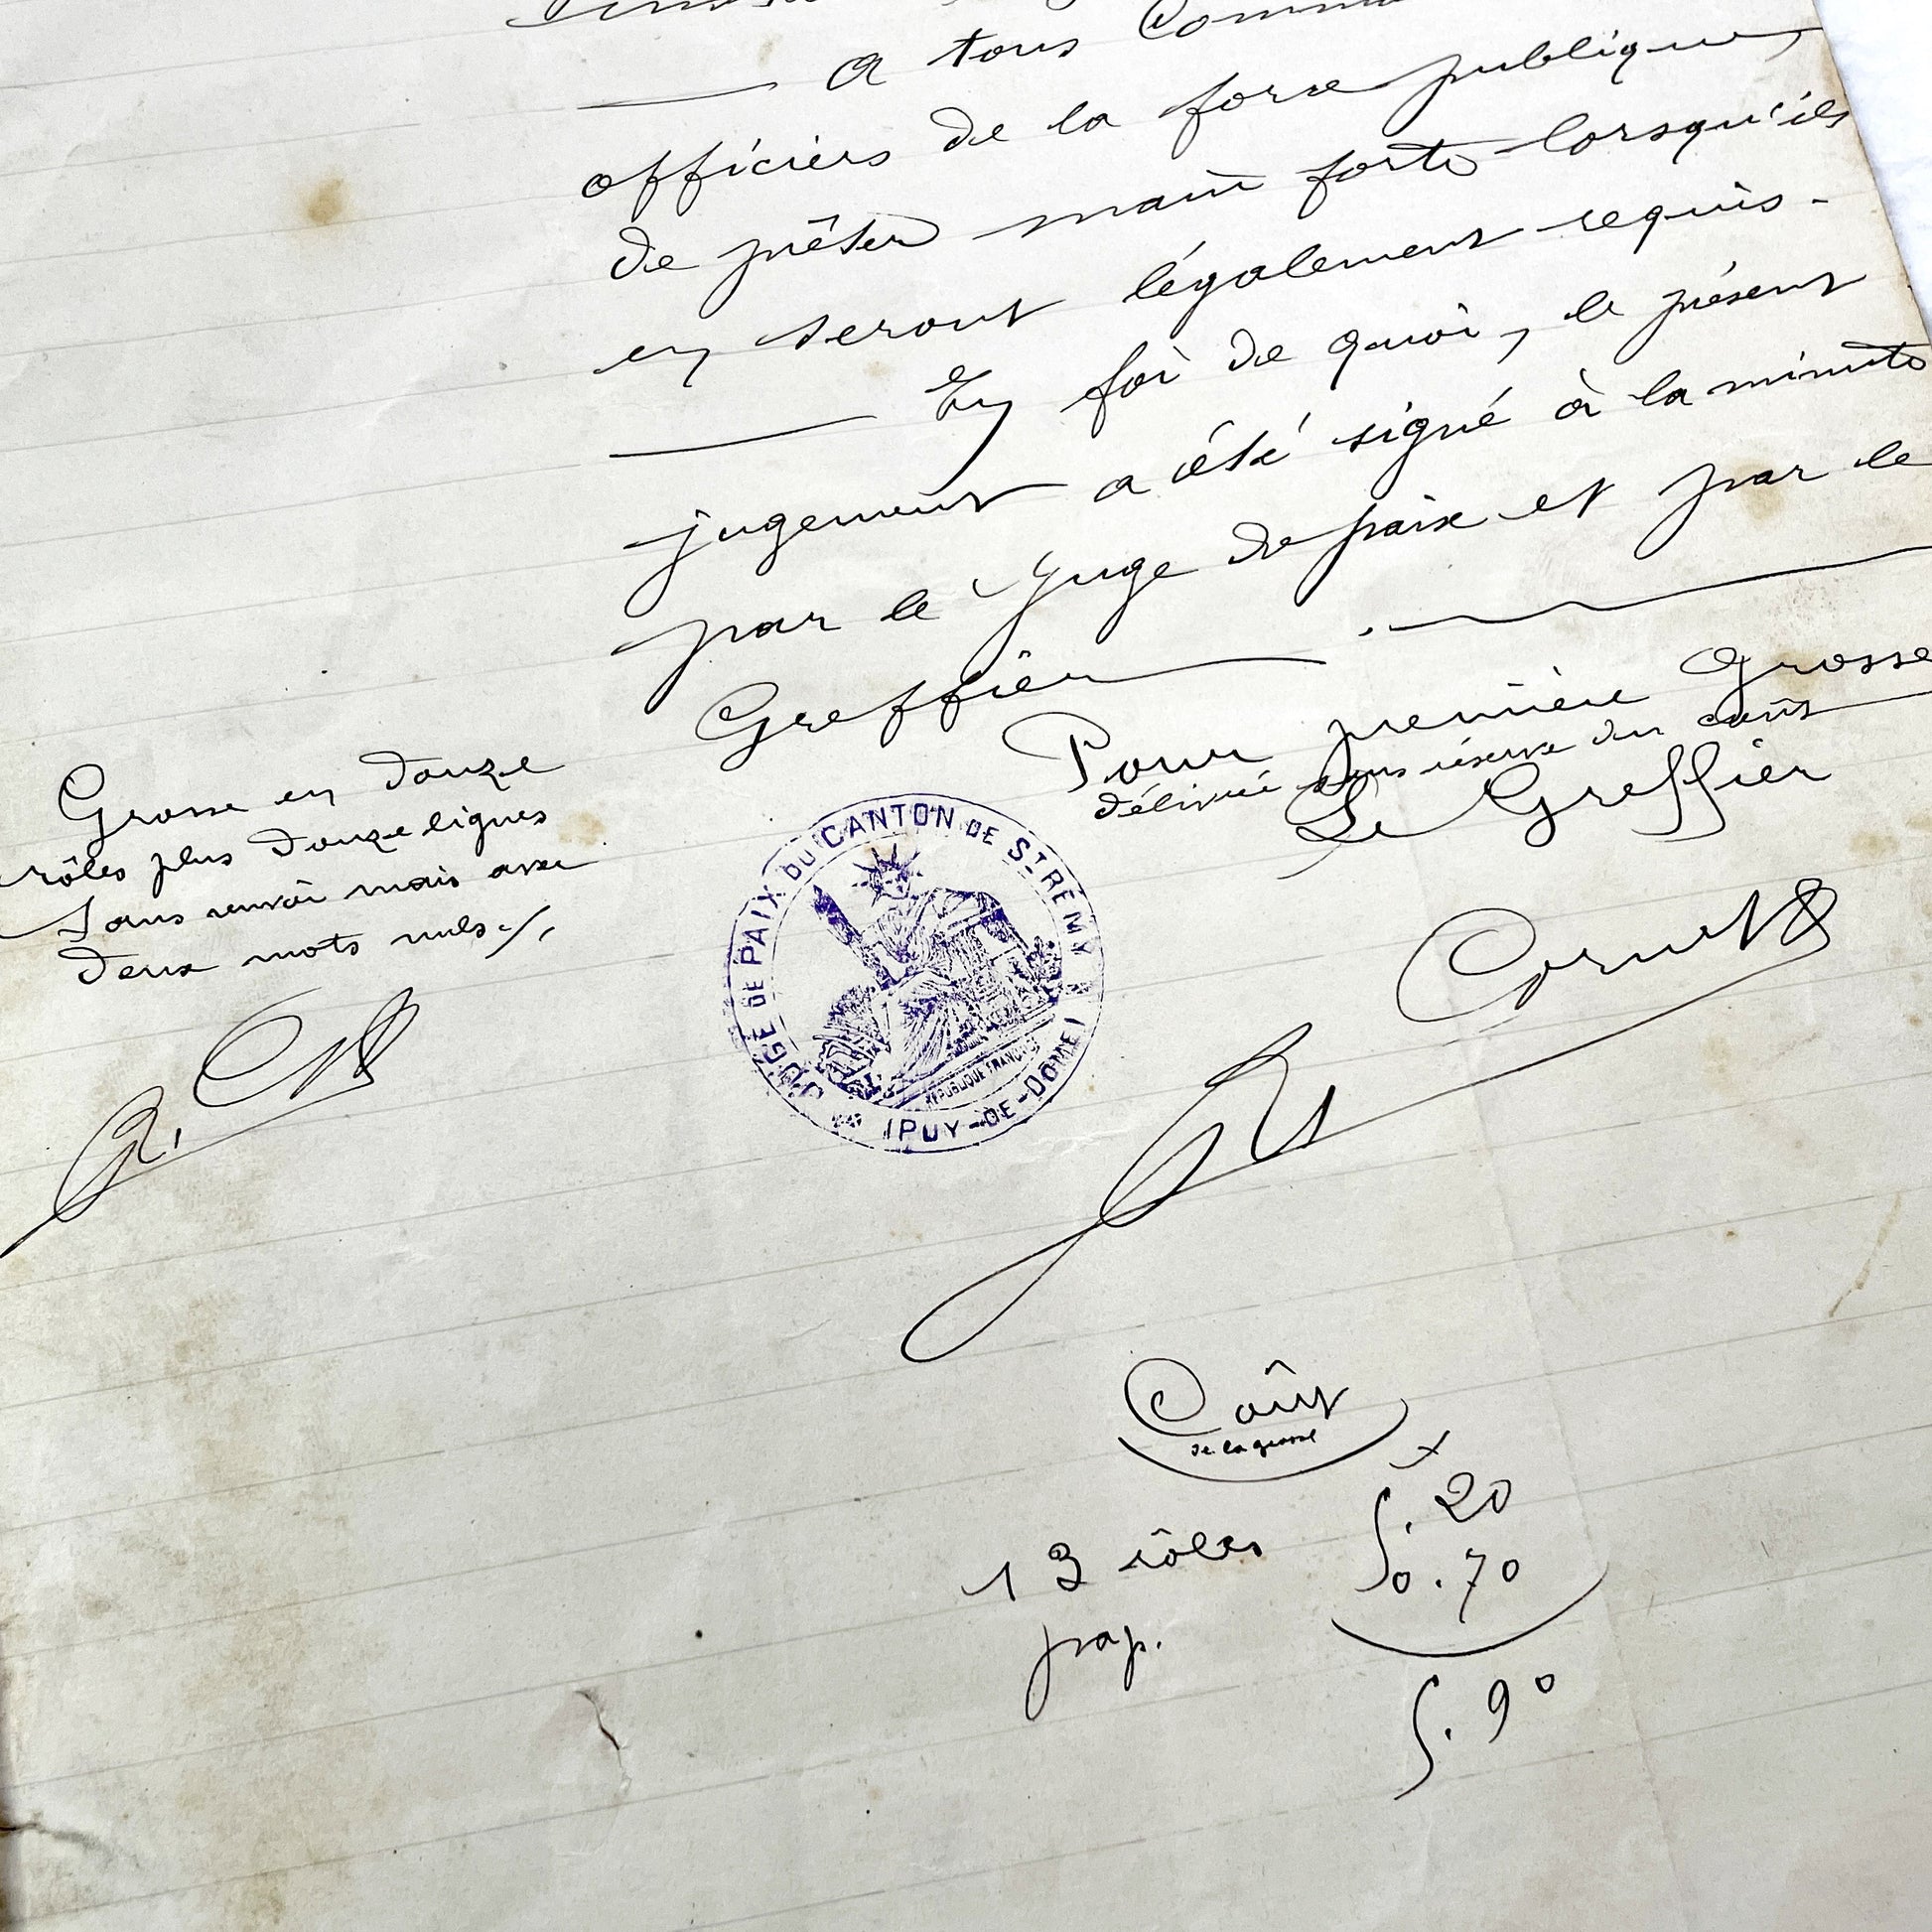 A tous Comm
officiers de la force publique,
de prêter main forte lorsqu'ils
en seront légalement requis.
En foi de quoi, le présent
jugement a été signé à la minute
par le Juge de paix et par le
Greffier
Pour première Grosse
délivrée sous réserve du coût
Le Greffier
Grosse en douze
rôles plus douze lignes
sans renvoi mais avec
deux mots nuls ./.
JUGE DE PAIX DU CANTON DE ST RÉMY
(PUY-DE-DOME)
RÉPUBLIQUE FRANÇAISE
Coût
de la grosse
13 rôles 5.20
pap. 0.70
5.90